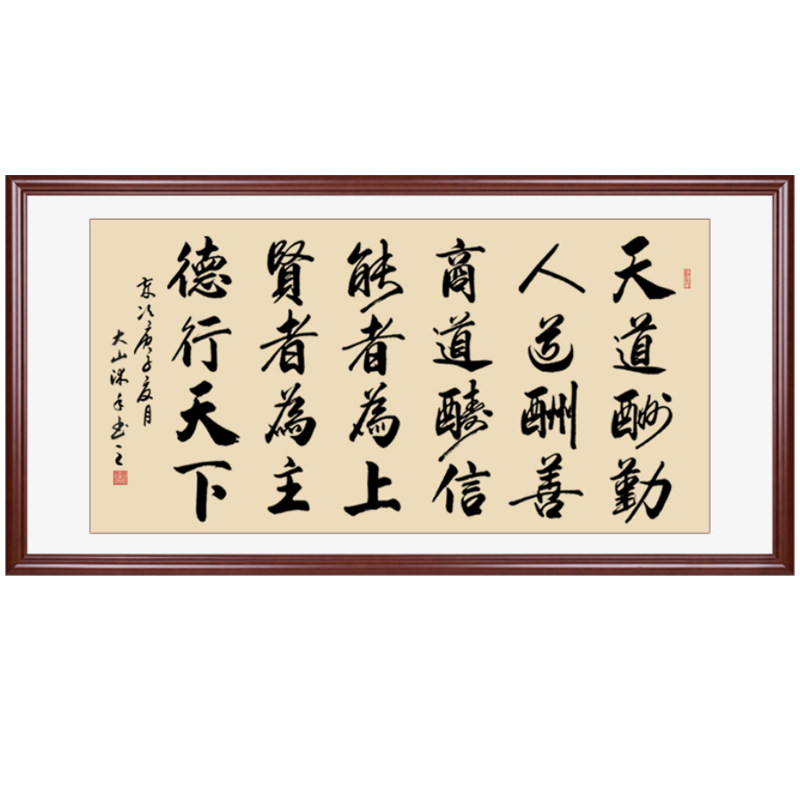 天道酬勤
人道酬善
商道酬信
能者為上
賢者為主
德行天下
歲次庚子夏月
大山